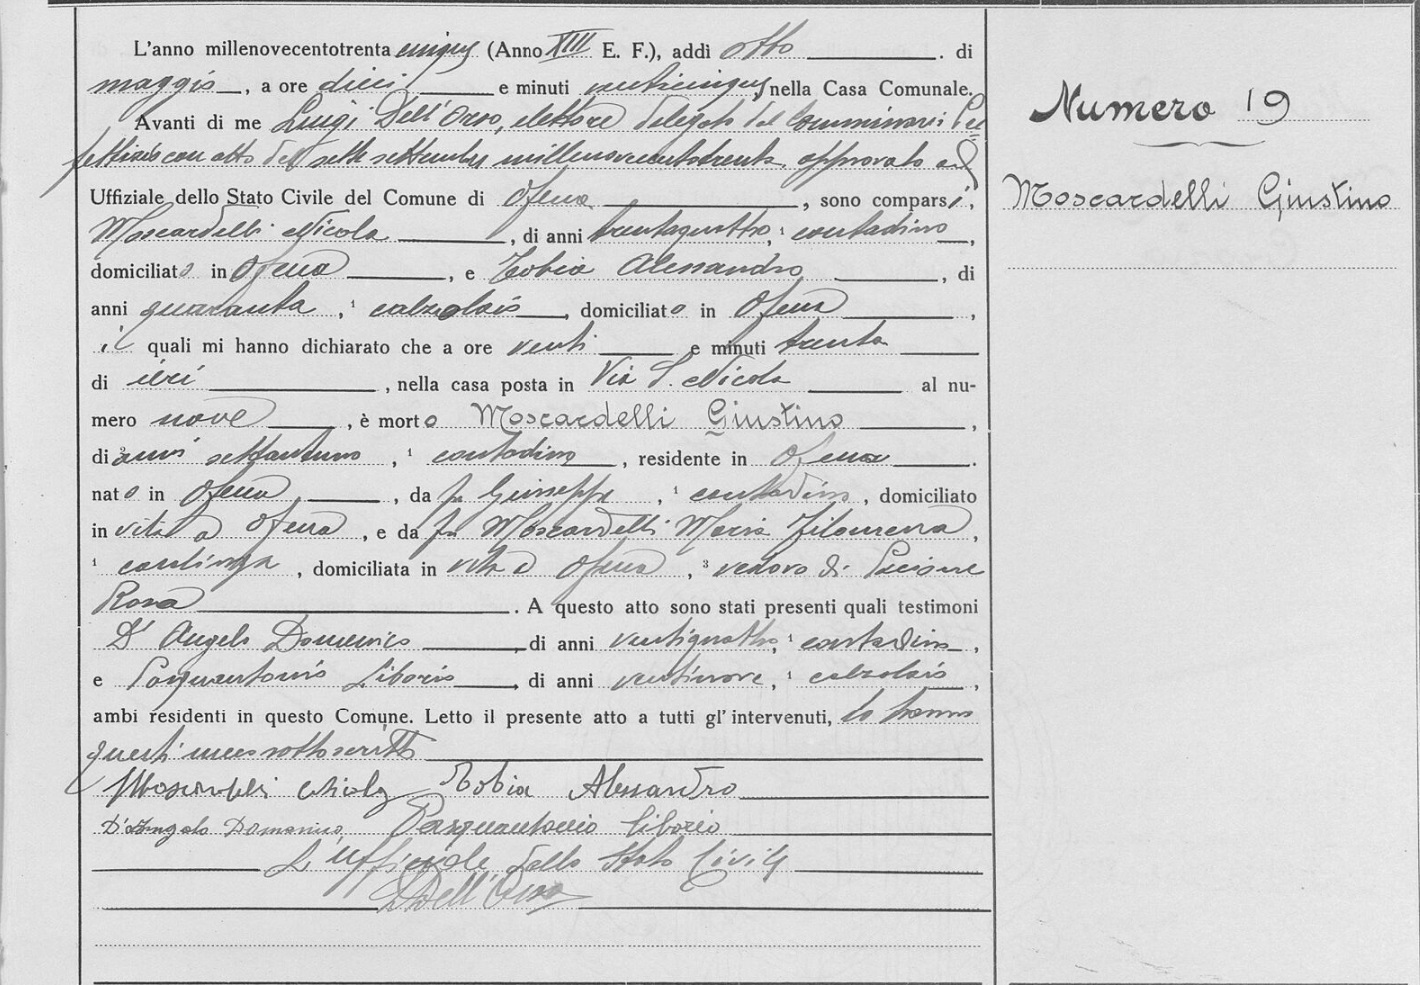 L'anno millenovecentotrenta cinque (Anno XIII E. F.), addì otto di
maggio, a ore dieci e minuti venticinque, nella Casa Comunale.
Numero 19
Avanti di me Luigi Dell'Orso, elettore delegato dal Commissario Pre
fettizio con atto del sette settembre millenovecentotrenta, approvato ed
Uffiziale dello Stato Civile del Comune di Ofena, sono comparsi,
Moscardelli Giustino
Moscardelli Nicola, di anni trentaquattro, ¹ contadino,
domiciliato in Ofena, e Tobia Alessandro, di
anni quaranta, ¹ calzolaio, domiciliato in Ofena,
i quali mi hanno dichiarato che a ore venti e minuti trenta
di ieri, nella casa posta in Via S. Nicola al nu-
mero nove, è morto Moscardelli Giustino,
di anni settantuno, ¹ contadino, residente in Ofena.
nato in Ofena, da fu Giuseppe, ¹ contadino, domiciliato
in vita a Ofena, e da fu Moscardelli Maria Filomena,
¹ casalinga, domiciliata in vita a Ofena, ³ vedovo di
Rosa. A questo atto sono stati presenti quali testimoni
D'Angelo Domenico, di anni ventiquattro, ¹ contadino,
e Pasquantonio Liborio, di anni ventinove, ¹ calzolaio,
ambi residenti in questo Comune. Letto il presente atto a tutti gl'intervenuti, lo hanno
questi meco sottoscritto
Moscardelli Nicola Tobia Alessandro
D'Angelo Domenico Pasquantonio Liborio
L'Ufficiale dello Stato Civile
L Dell'Orso